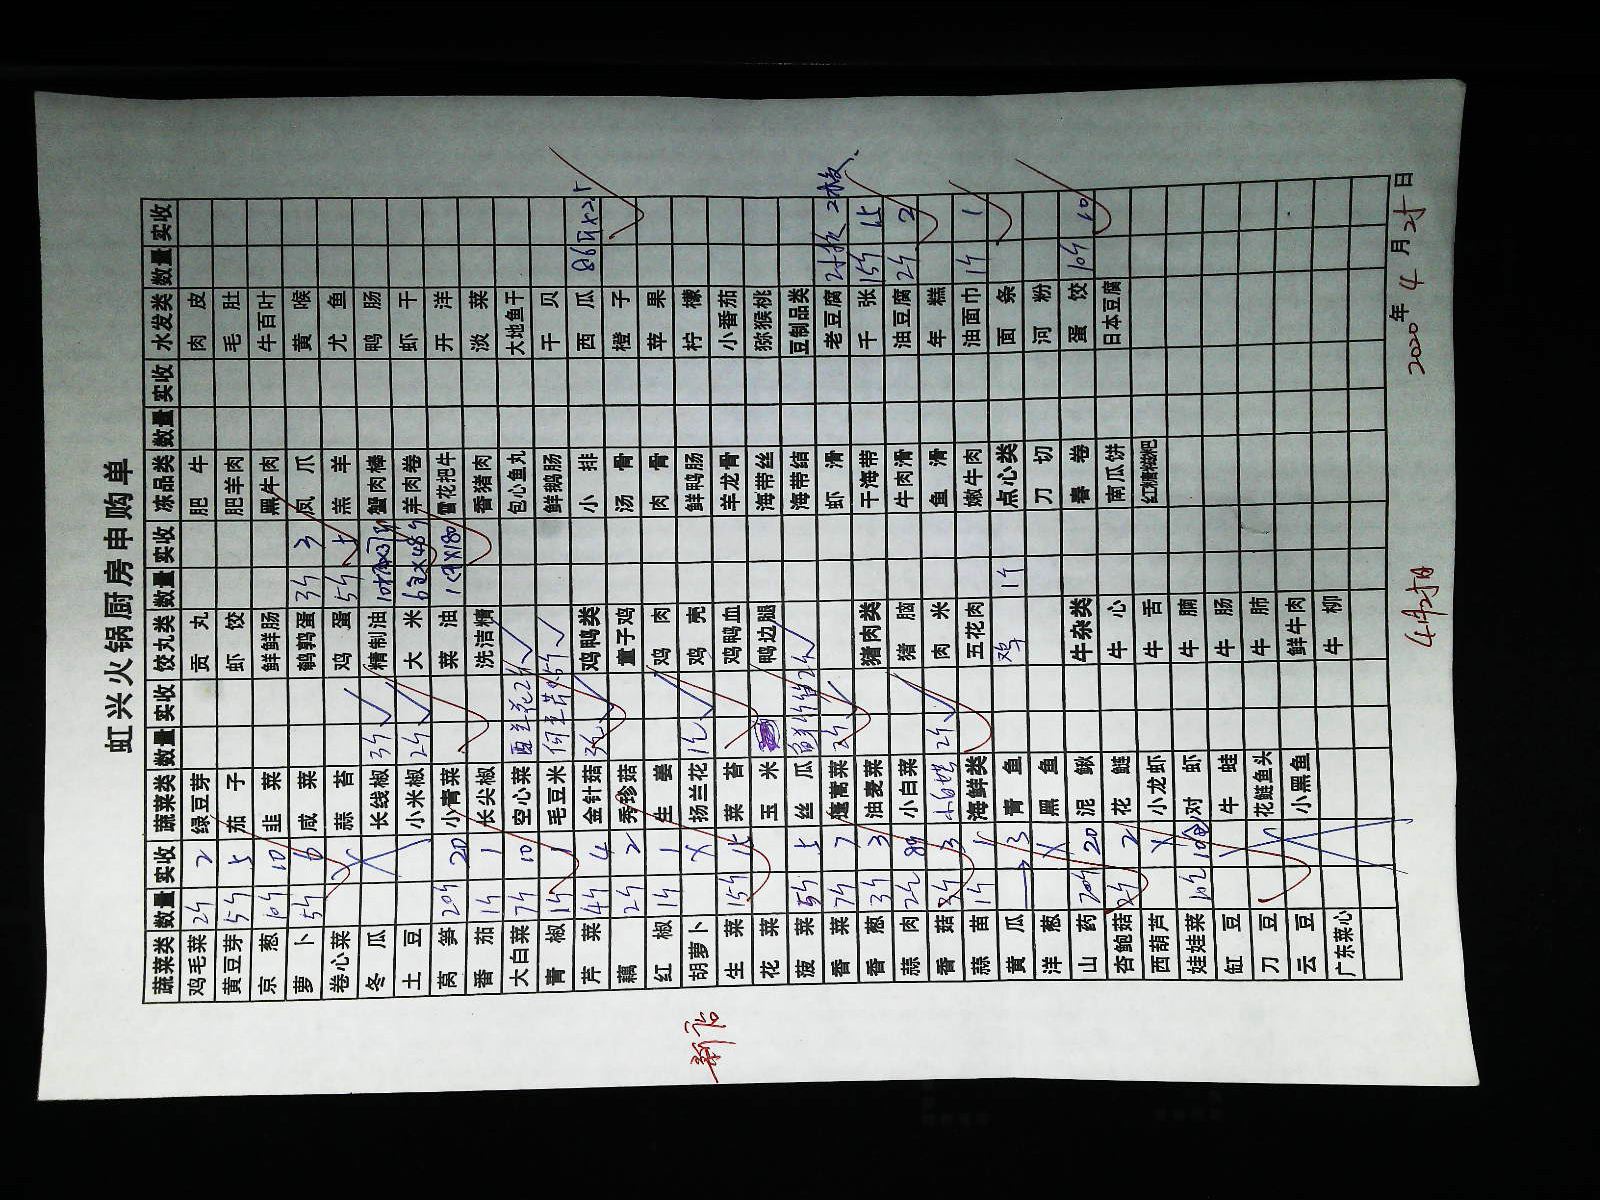 虹兴火锅厨房申购单
蔬菜类 数量 实收 蔬菜类 数量 实收 饺丸类 数量 实收 冻品类 数量 实收 水发类 数量 实收
鸡毛菜 2斤 2 绿豆芽 贡丸 肥牛 肉皮
黄豆芽 5斤 5 茄子 虾饺 肥羊肉 毛肚
京葱 10斤 10 韭菜 鲜鲜肠 黑牛肉 牛百叶
萝卜 5斤 6 咸菜 鹌鹑蛋 3斤 3 凤爪 黄喉
卷心菜 蒜苔 鸡蛋 5斤 5 羔羊 尤鱼
冬瓜 长线椒 3斤 精制油 蟹肉棒 鸭肠
土豆 小米椒 2斤 大米 6包×48斤 羊肉卷 虾干
莴笋 20斤 20 小青菜 菜油 1件×180 雪花把牛 开洋
番茄 1斤 1 长尖椒 洗洁精 香猪肉 淡菜
大白菜 7斤 10 空心菜 西兰花2斤 包心鱼丸 大地鱼干
青椒 1斤 1 毛豆米 鲜鹅肠 干贝
芹菜 4斤 4 金针菇 鸡鸭类 小排 西瓜
藕 2斤 2 秀珍菇 童子鸡 汤骨 橙子
红椒 1斤 1 生姜 鸡肉 肉骨 苹果
胡萝卜 × 扬兰花 鸡壳 鲜鸭肠 柠檬
生菜 15斤 15 菜苔 鸡鸭血 羊龙骨 小番茄
花菜 玉米 鸭边腿 海带丝 猕猴桃
菠菜 5斤 5 丝瓜 海带结 豆制品类
香菜 7斤 7 蓬蒿菜 2斤 虾滑 老豆腐 2板
香葱 3斤 3 油麦菜 猪肉类 干海带 千张 15斤 15
蒜肉 小白菜 猪脑 牛肉滑 油豆腐 2斤 2
香菇 3斤 3 2斤 肉米 鱼滑 年糕
蒜苗 1斤 1 海鲜类 五花肉 嫩牛肉 油面巾 1斤 1
黄瓜 3 青鱼 鸡 1斤 点心类 面条
洋葱 × 黑鱼 刀切 河粉
山药 20斤 20 泥鳅 牛杂类 春卷 蛋饺 10斤 10
杏鲍菇 2斤 2 花鲢 牛心 南瓜饼 日本豆腐
西葫芦 × 小龙虾 牛舌 红糖糍粑
娃娃菜 10斤 对虾 牛腩
缸豆 牛蛙 牛肠
刀豆 花鲢鱼头 牛肺
云豆 小黑鱼 鲜牛肉
广东菜心 牛柳
新店
4月25日
2020年4月25日